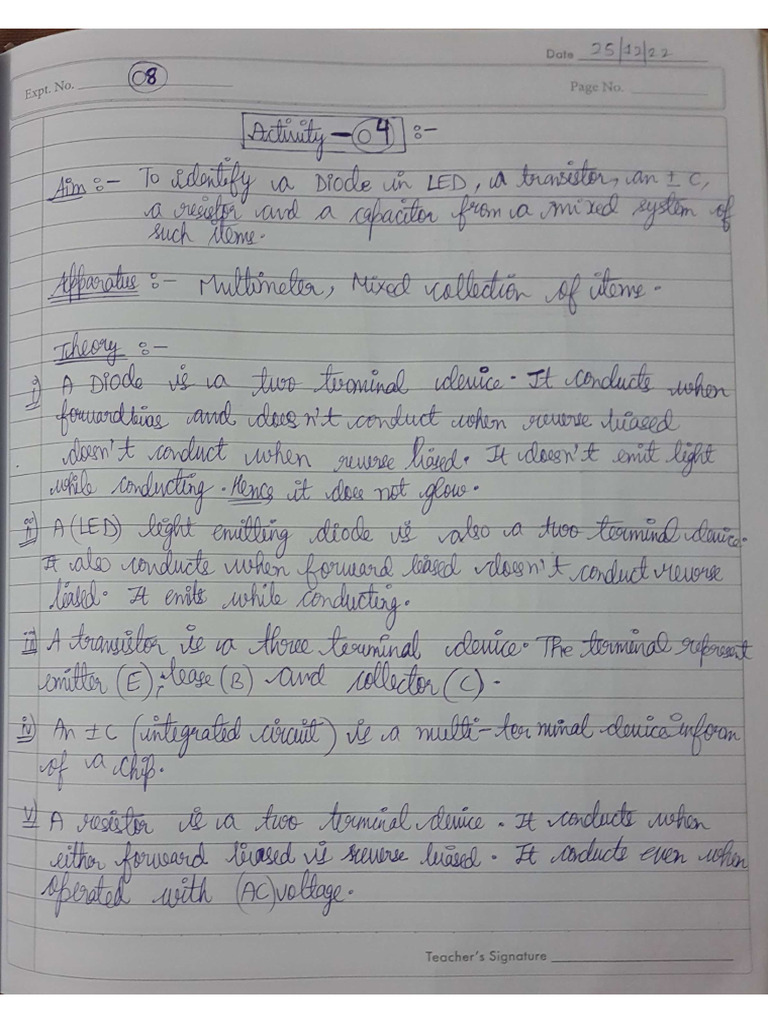 Date 25/12/22
Expt. No. 08
Page No.
Activity - 04 :-
Aim :- To identify a Diode in LED, a transistor, an ± C,
a resistor and a capacitor from a mixed system of
such items.
Apparatus :- Multimeter, Mixed collection of items.
Theory :-
i) A Diode is a two terminal device. It conducts when
forward bias and does n't conduct when reverse biased
doesn't conduct when reverse biased. It doesn't emit light
while conducting. Hence it does not glow.
ii) A (LED) light emitting diode is also a two terminal device.
It also conducts when forward biased doesn't conduct reverse
biased. It emits while conducting.
iii) A transistor is a three terminal device. The terminal represent
emitter (E), base (B) and collector (C).
iv) An ±C (integrated circuit) is a multi-terminal device inform
of a chip.
v) A resistor is a two terminal device. It conducts when
either forward biased is reverse biased. It conducts even when
operated with (AC) voltage.
Teacher's Signature